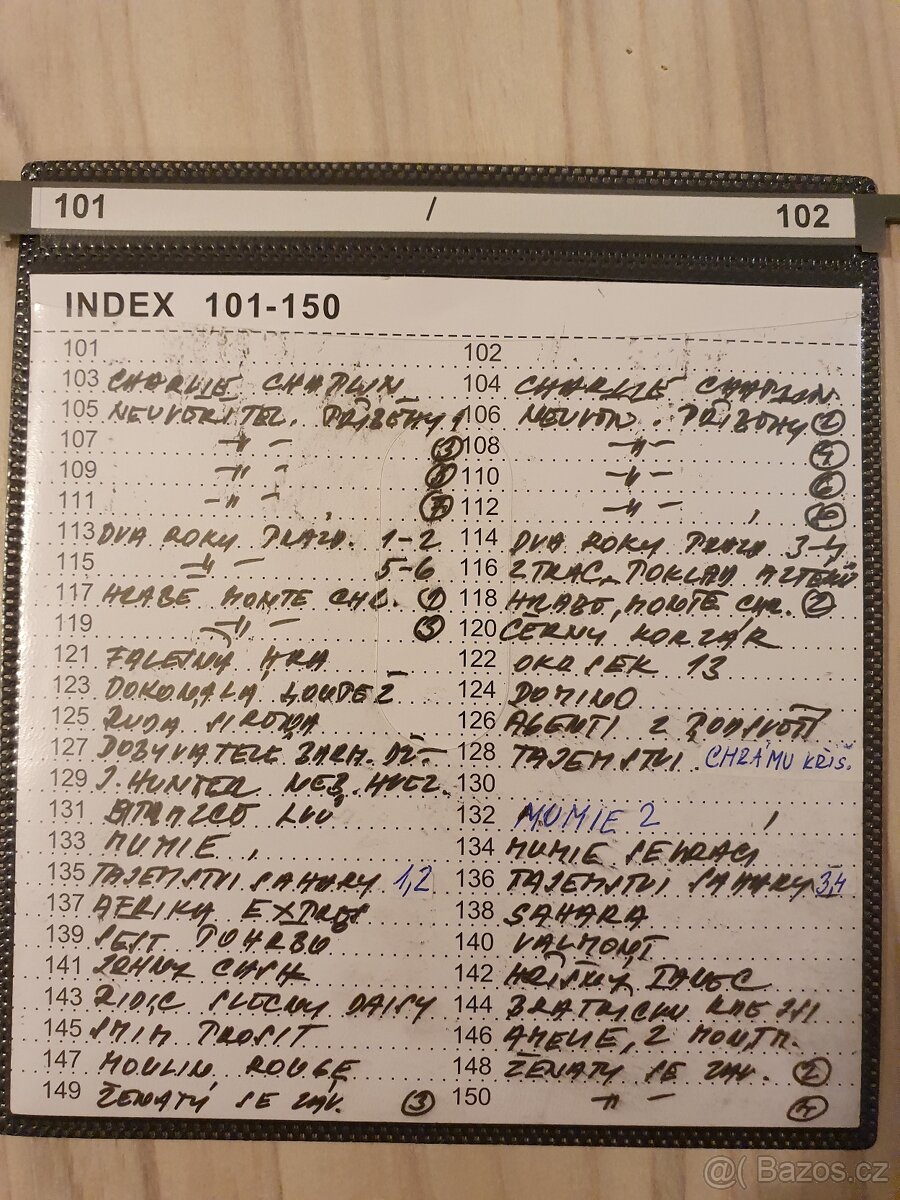 101 / 102
INDEX 101-150
101 102
103 CHARLIE CHAPLIN 104 CHARLIE CHAPLIN
105 NEUVĚŘITEL. PŘÍBĚHY 1 106 NEUVĚŘ. PŘÍBĚHY 2
107 -"- 3 108 -"- 4
109 -"- 5 110 -"- 6
111 -"- 7 112 -"-
113 DVA ROKY PRÁZD. 1-2 114 DVA ROKY PRÁZD 3-4
115 -"- 5-6 116 ZTRAC. POKLAD AZTÉKŮ
117 HRABĚ MONTE CHR. 1 118 HRABĚ MONTE CHR. 2
119 -"- 3 120 ČERNÝ KORZÁR
121 FALEŠNÁ HRA 122 OKRSEK 13
123 DOKONALÁ LOUPEŽ 124 DOMINO
125 RUDÁ SIROWA 126 AGENTI Z PODSVĚTÍ
127 DOBYVATELÉ ZTRAC. 128 TAJEMSTVÍ CHRÁMU KRIŠ.
129 J. HUNTER NEB. HVĚZ. 130
131 LVŮ 132 MUMIE 2
133 MUMIE 134 MUMIE SE VRACÍ
135 TAJEMSTVÍ SAHARY 1,2 136 TAJEMSTVÍ SAHARY 3,4
137 AFRIKA EXPRES 138 SAHARA
139 ŠEST POHŘBŮ 140 VALMONT
141 JOHNY CASH 142 HŘÍŠNÝ TANEC
143 ŘIDIČ SLEČNY DAISY 144 BRATŘÍČKU KDE JSI
145 SMÍM PROSIT 146 AMELIE, Z MONTM.
147 MOULIN ROUGE 148 ŽENATÝ SE ZÁV. 2
149 ŽENATÝ SE ZÁV. 3 150 -"- 4
@( Bazos.cz